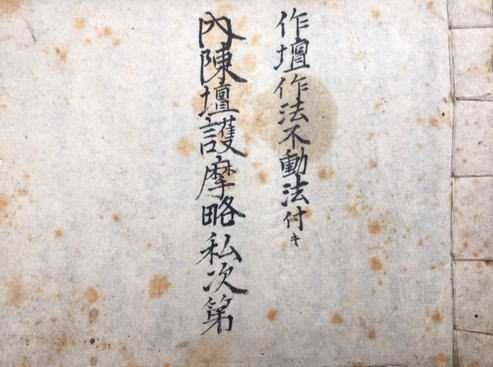 作壇作法不動法付キ
内陳壇護摩略私次第